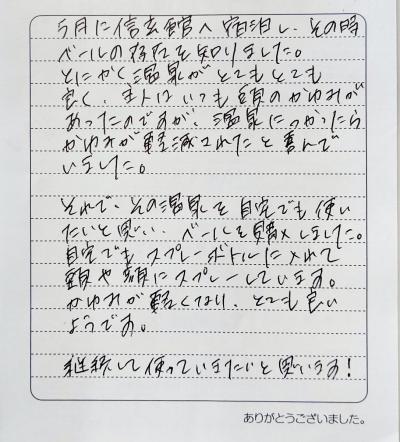 5月に信玄館へ宿泊し、その時
ベールの存在を知りました。
とにかく温泉がとてもとても
良く、主人はいつも頭のかゆみが
あったのですが、温泉につかったら
かゆみが軽減されたと喜んで
いました。
それで、その温泉を自宅でも使い
たいと思い、ベールを購入しました。
自宅でもスプレーボトルに入れて
頭や顔にスプレーしています。
かゆみが軽くなり、とても良い
ようです。
継続して使っていきたいと思います!
ありがとうございました。